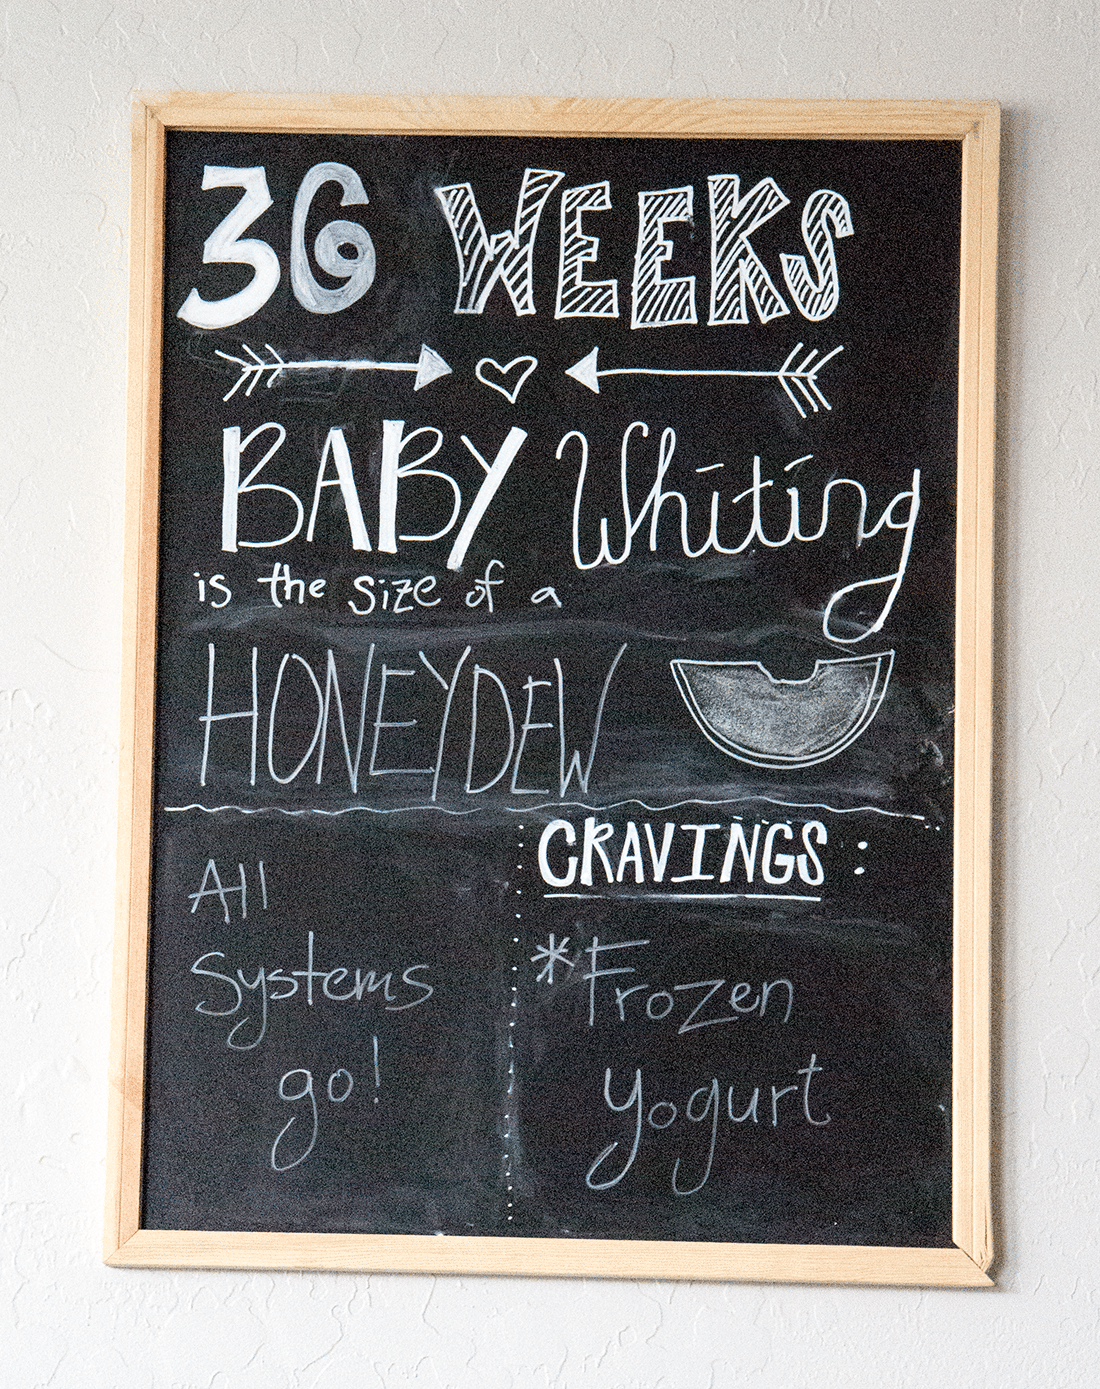 36 WEEKS
BABY Whiting
is the size of a
HONEYDEW
All
Systems
go!
CRAVINGS:
*Frozen
yogurt